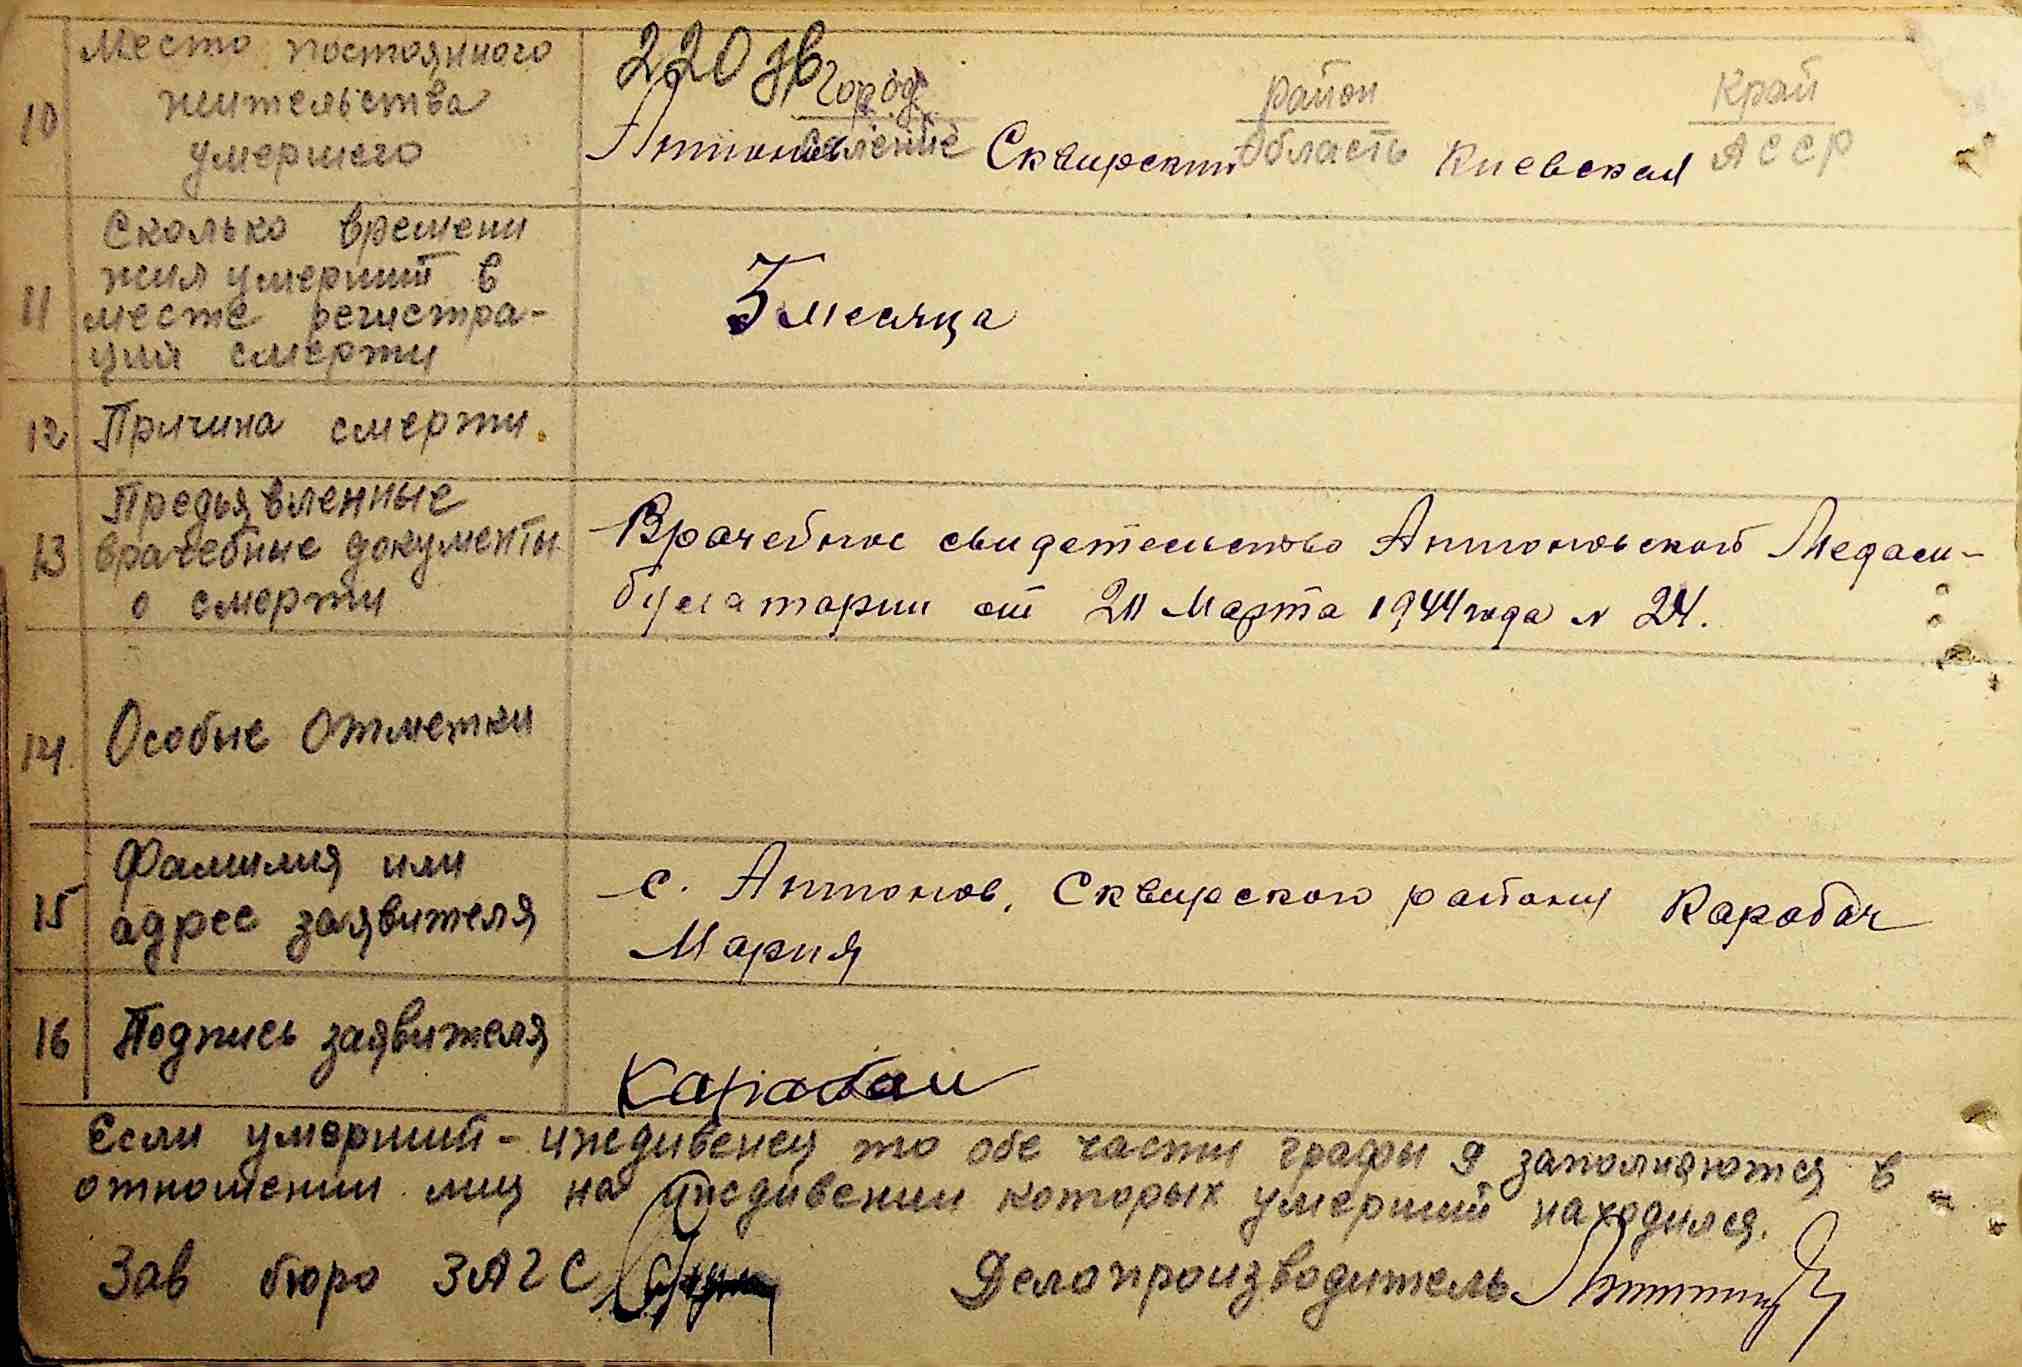 10 Место постоянного жительства умершего
220 зв
город район край
селение область АССР
Антонов Сквирский Киевская
11 Сколько времени
жил умерший в
месте регистра-
ции смерти
3 месяца
12 Причина смерти.
13 Предъявленные
врачебные документы
о смерти
Врачебное свидетельство Антоновской Медам-
булатории от 20 Марта 1944 года N 24.
14. Особые отметки
15 Фамилия или
адрес заявителя
с. Антонов, Сквирского района Карабач
Мария
16 Подпись заявителя
Если умерший - иждивенец то обе части графы 9 заполняются в
отношении лиц на иждивении которых умерший находился.
Зав бюро ЗАГС Делопроизводитель